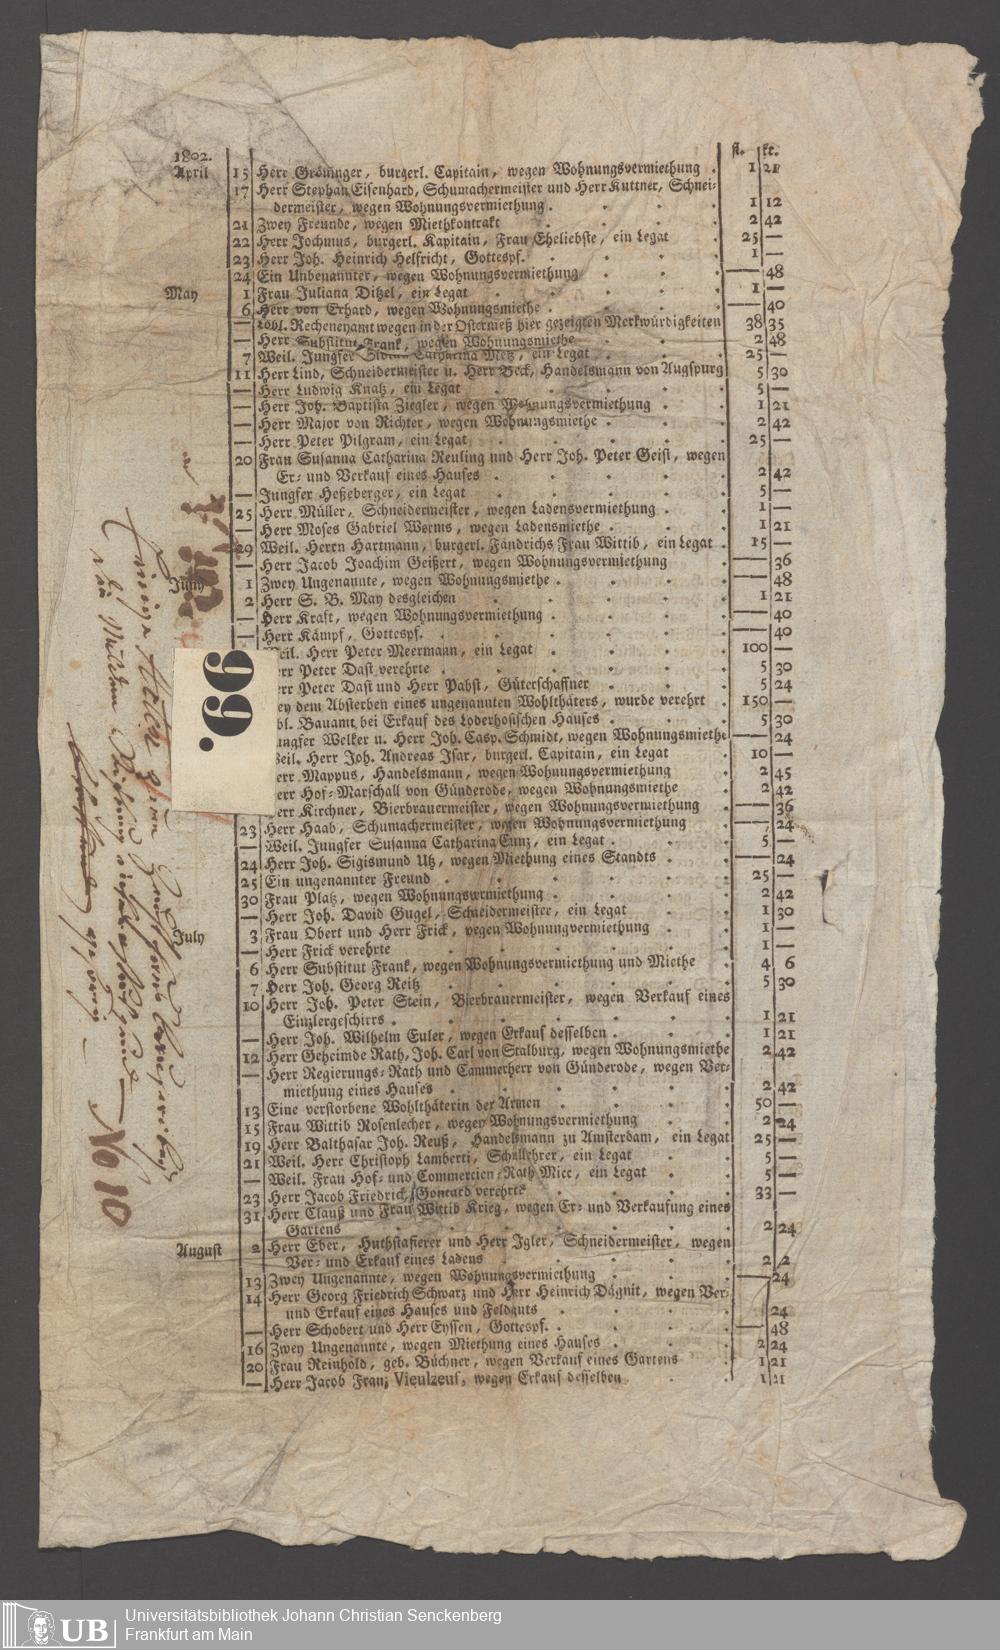 1802.
fl. kr.
April 15 Herr Gröninger, burgerl. Capitain, wegen Wohnungsvermiethung . 1 21
17 Herr Stephan Eisenhard, Schumachermeister und Herr Kuttner, Schnei-
dermeister, wegen Wohnungsvermiethung . . . . 1 12
21 Zwey Freunde, wegen Miethkontrakt . . . . 2 42
22 Herr Jochmus, burgerl. Kapitain, Frau Eheliebste, ein Legat . 25 —
23 Herr Joh. Heinrich Helfricht, Gottespf. . . . . 1 —
24 Ein Unbenannter, wegen Wohnungsvermiethung . . . — 48
May 1 Frau Juliana Ditzel, ein Legat . . . . 1 —
6 Herr von Erhard, wegen Wohnungsmiethe . . . . — 40
— Löbl. Recheneyamt wegen in der Ostermeß hier gezeigten Merkwürdigkeiten 38 35
— Herr Substitut Frank, wegen Wohnungsmiethe . . . 2 48
7 Weil. Jungfer Catharina Metz, ein Legat . . . 25 —
11 Herr Lind, Schneidermeister u. Herr Beck, Handelsmann von Augspurg 5 30
— Herr Ludwig Knatz, ein Legat . . . . 5 —
— Herr Joh. Baptista Ziegler, wegen Wohnungsvermiethung . . 1 21
— Herr Major von Richter, wegen Wohnungsmiethe . . . 2 42
— Herr Peter Pilgram, ein Legat . . . . 25 —
20 Frau Susanna Catharina Reuling und Herr Joh. Peter Geist, wegen
Er- und Verkauf eines Hauses . . . . . 2 42
— Jungfer Heßeberger, ein Legat . . . . 5 —
25 Herr Müller, Schneidermeister, wegen Ladensvermiethung . . 1 —
— Herr Moses Gabriel Werms, wegen Ladensmiethe . . . 1 21
29 Weil. Herrn Hartmann, burgerl. Fändrichs Frau Wittib, ein Legat . 15 —
— Herr Jacob Joachim Geißert, wegen Wohnungsvermiethung . — 36
Juny 1 Zwey Ungenannte, wegen Wohnungsmiethe . . . . — 48
2 Herr S. B. May desgleichen . . . . 1 21
— Herr Kraft, wegen Wohnungsvermiethung . . . — 40
— Herr Kämpf, Gottespf. . . . . — 40
Weil. Herr Peter Meermann, ein Legat . . . 100 —
Herr Peter Dast verehrte . . . . 5 30
Herr Peter Dast und Herr Pabst, Güterschaffner . . 5 24
Bey dem Absterben eines ungenannten Wohlthäters, wurde verehrt . 150 —
Löbl. Bauamt bei Erkauf des Loderhosischen Hauses . . . 5 30
Jungfer Welker u. Herr Joh. Casp. Schmidt, wegen Wohnungsmiethe — 24
Weil. Herr Joh. Andreas Isar, burgerl. Capitain, ein Legat . 10 —
Herr Mappus, Handelsmann, wegen Wohnungsvermiethung . 2 45
Herr Hof-Marschall von Günderode, wegen Wohnungsmiethe . 2 42
Herr Kirchner, Bierbrauermeister, wegen Wohnungsvermiethung . — 36
23 Herr Haab, Schumachermeister, wegen Wohnungsvermiethung . — 24
— Weil. Jungfer Susanna Catharina Cunz, ein Legat . . . 5 —
24 Herr Joh. Sigismund Utz, wegen Miethung eines Standts . . — 24
25 Ein ungenannter Freund . . . . . 25 —
30 Frau Platz, wegen Wohnungsvermiethung . . . . 2 42
— Herr Joh. David Gugel, Schneidermeister, ein Legat . . 1 30
July 3 Frau Obert und Herr Frick, wegen Wohnungvermiethung . . 1 —
— Herr Frick verehrte . . . . 1 —
6 Herr Substitut Frank, wegen Wohnungsvermiethung und Miethe . 4 6
7 Herr Joh. Georg Reitz . . . . 5 30
10 Herr Joh. Peter Stein, Bierbrauermeister, wegen Verkauf eines
Einzlergeschirrs . . . . . . 1 21
— Herr Joh. Wilhelm Euler, wegen Erkauf desselben . . . 1 21
12 Herr Geheimde Rath, Joh. Carl von Stalburg, wegen Wohnungsmiethe 2 42
— Herr Regierungs-Rath und Cammerherr von Günderode, wegen Ver-
miethung eines Hauses . . . . . 2 42
13 Eine verstorbene Wohlthäterin der Armen . . . . 50 —
15 Frau Wittib Rosenlecher, wegen Wohnungsvermiethung . . 2 24
19 Herr Balthasar Joh. Reuß, Handelsmann zu Amsterdam, ein Legat 25 —
21 Weil. Herr Christoph Lamberti, Schullehrer, ein Legat . . 5 —
— Weil. Frau Hof- und Commercien-Rath Micc, ein Legat . . 5 —
23 Herr Jacob Friedrich Gontard verehrte . . . . 33 —
31 Herr Clauß und Frau Wittib Krieg, wegen Er- und Verkaufung eines
Gartens . . . . . . 2 24
August 2 Herr Eber, Huthstafierer und Herr Igler, Schneidermeister, wegen
Ver- und Erkauf eines Ladens . . . . 2 2
13 Zwey Ungenannte, wegen Wohnungsvermiethung . . . — 24
14 Herr Georg Friedrich Schwarz und Herr Heinrich Dägnit, wegen Ver-
und Erkauf eines Hauses und Feldguts . . . . 24
— Herr Schobert und Herr Eyssen, Gottespf. . . . . — 48
16 Zwey Ungenannte, wegen Miethung eines Hauses . . . 2 24
20 Frau Reinhold, geb. Büchner, wegen Verkauf eines Gartens . 1 21
— Herr Jacob Franz Vieulzeuf, wegen Erkauf desselben . . 1 21
No 10
99.
UB
Universitätsbibliothek Johann Christian Senckenberg
Frankfurt am Main